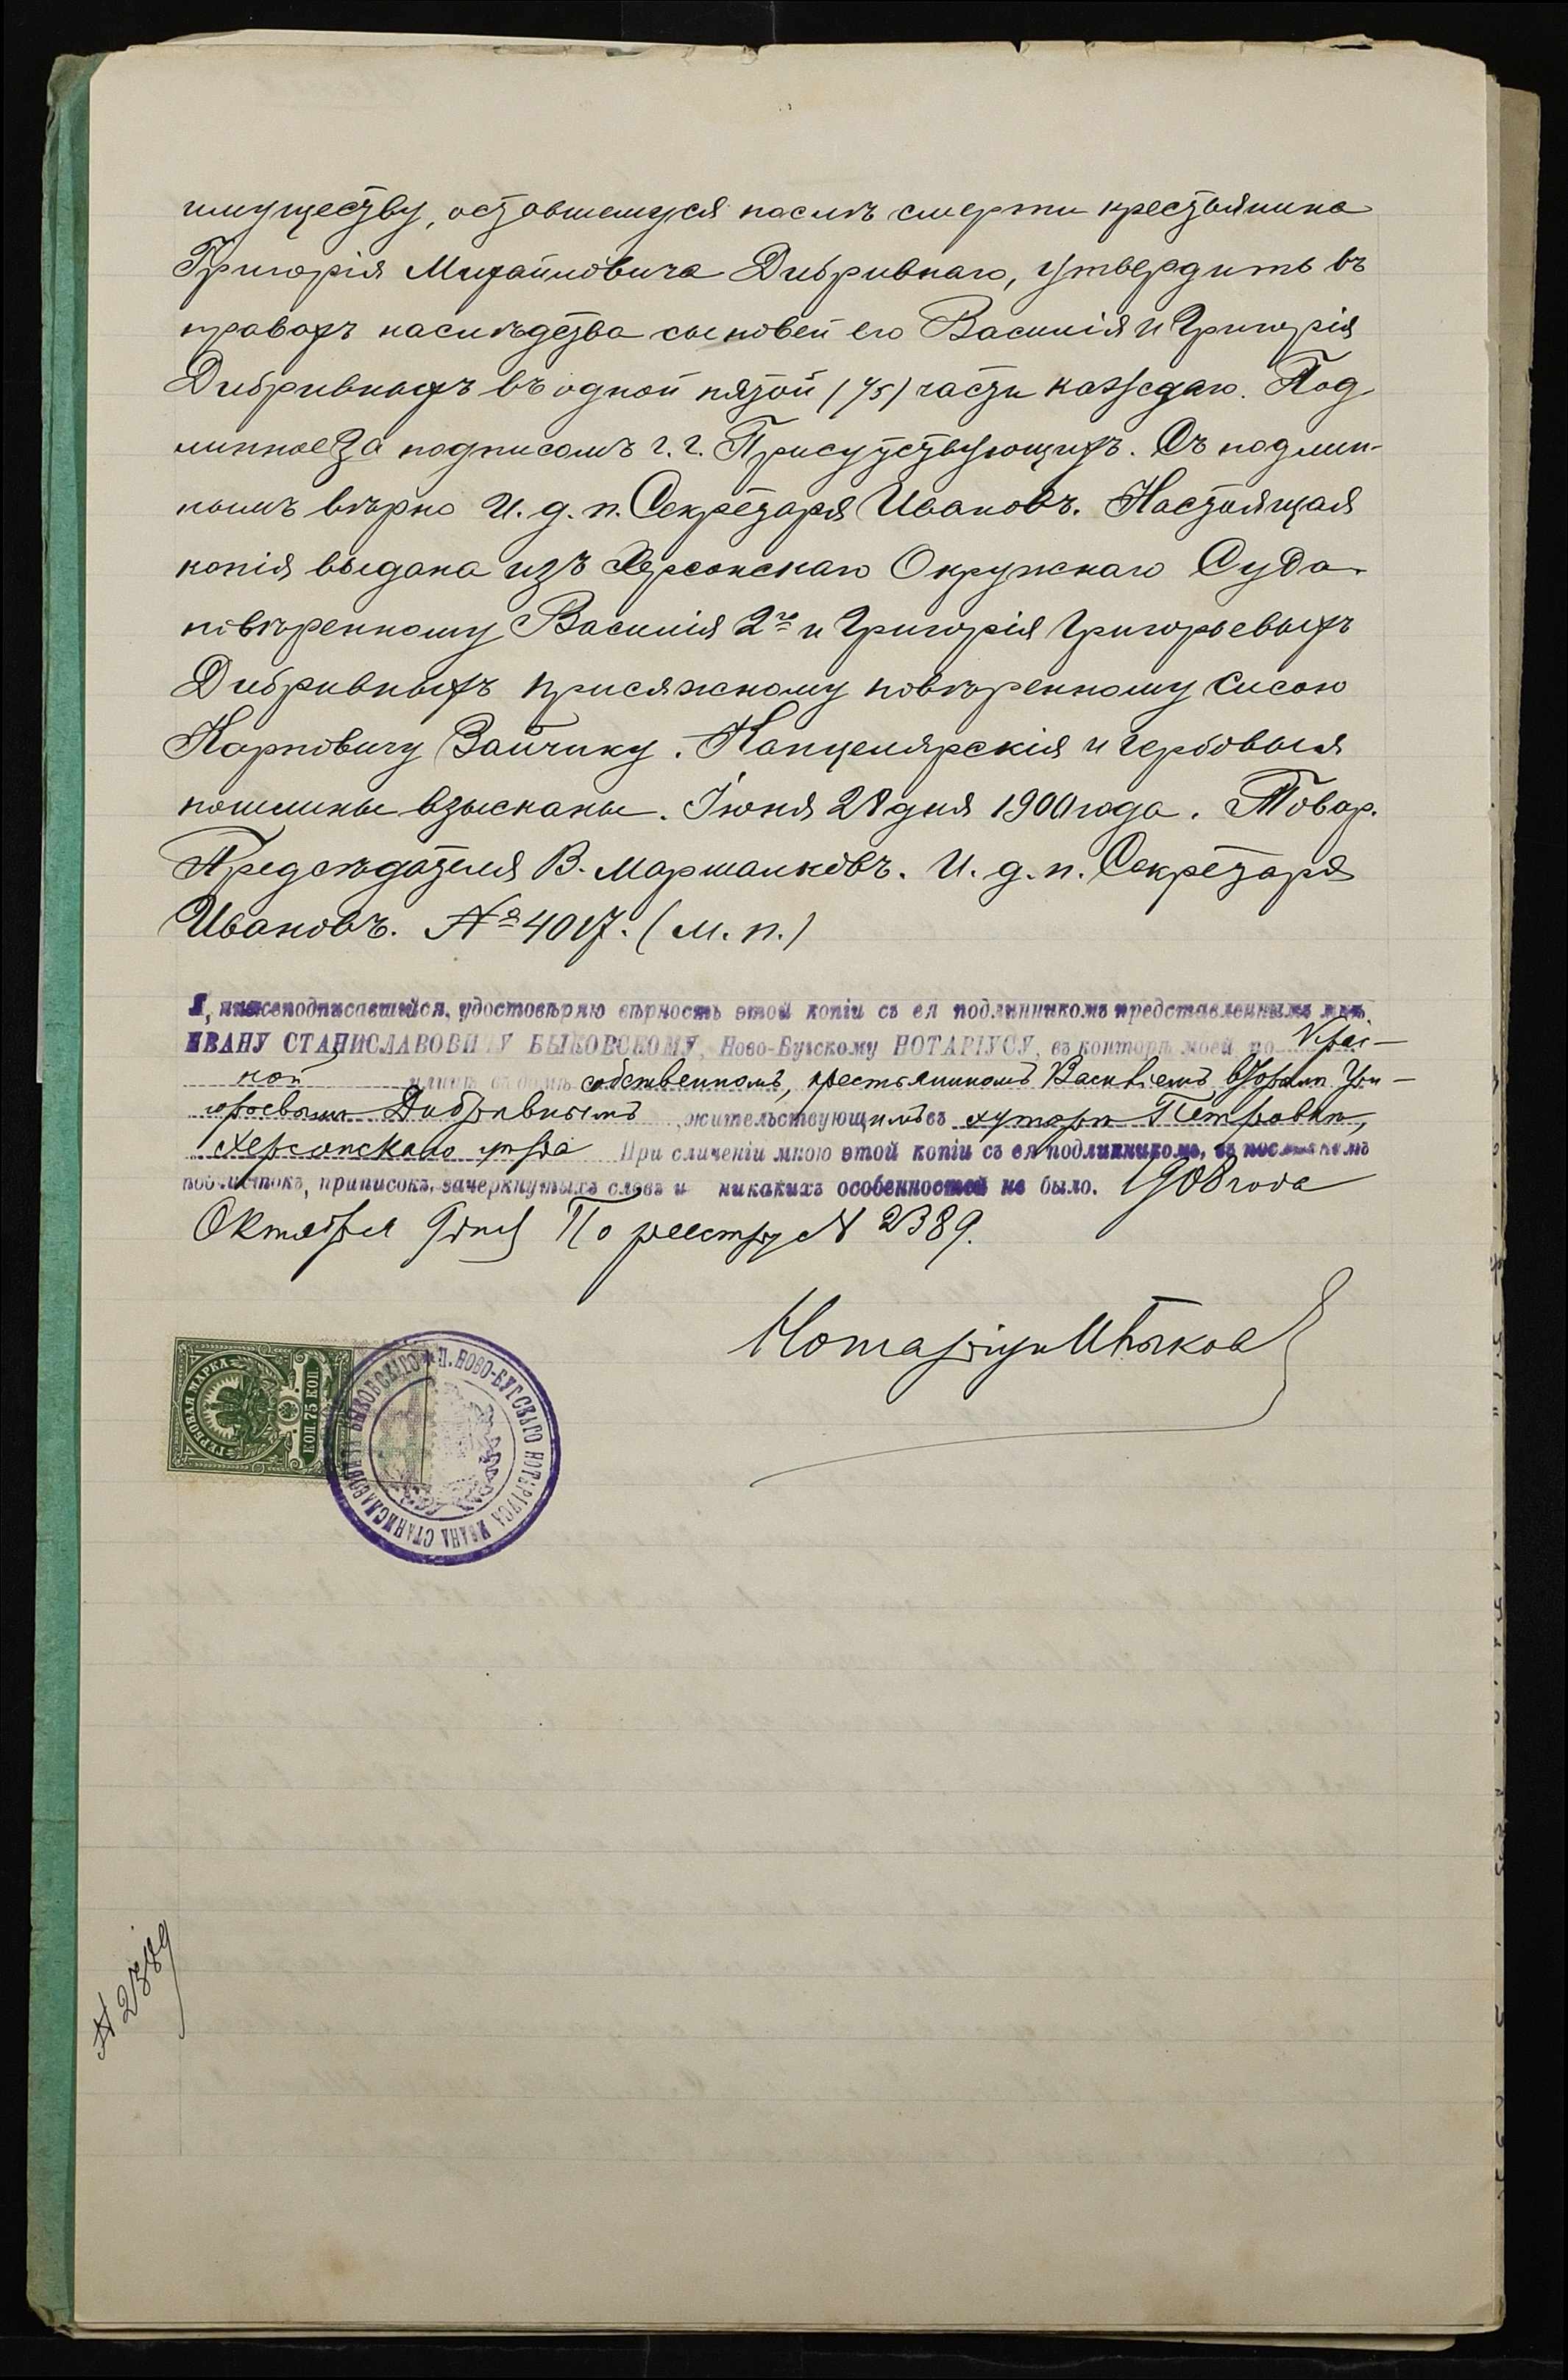 имуществу, оставшемуся послѣ смерти крестьянина
Григорія Михайловича Дибривнаго, утвердить въ
правахъ наслѣдства сыновей его Василія и Григорія
Дибривныхъ въ одной пятой (1/5) части каждаго. Под
линное за подписомъ г. г. Присутствующихъ. Съ подлин-
нымъ вѣрно И. д. п. Секретаря Ивановъ. Настоящая
копія выдана изъ Херсонскаго Окружнаго Суда
повѣренному Василія 2го и Григорія Григорьевыхъ
Дибривныхъ присяжному повѣренному Сисою
Карповичу Зайчику. Канцелярскія и гербовыя
пошлины взысканы. Іюня 28 дня 1900 года. Товар.
Предсѣдателя В. Маршалковъ. И. д. п. Секретаря
Ивановъ. № 4017. (м. п.)
Я, нижеподписавшійся, удостовѣряю вѣрность этой копіи съ ея подлинникомъ представленнымъ мнѣ,
ИВАНУ СТАНИСЛАВОВИЧУ БЫКОВСКОМУ, Ново-Бугскому НОТАРІУСУ, въ конторѣ моей по Край-
ной улицѣ въ домѣ собственномъ, крестьяниномъ Василіемъ Вторымъ Гри-
горьевымъ Дибривнымъ жительствующимъ въ хуторѣ Петровкѣ,
Херсонскаго уѣзда При сличеніи мною этой копіи съ ея подлинникомъ, въ послѣднемъ
подчистокъ, приписокъ, зачеркнутыхъ словъ и никакихъ особенностей не было. 1908 года
Октября 9 дня По реестру № 2389.
Нотаріусъ И Быков
ГЕРБОВАЯ МАРКА
КОП 75 КОП
П. НОВО-БУГСКАГО НОТАРІУСА ИВАНА СТАНИСЛАВОВИЧА БЫКОВСКАГО
№ 2389